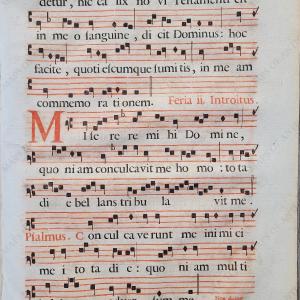 detur, hic ca lix no vi Testamenti est
in me o sanguine, di cit Dominus: hoc
facite, quoti escumque sumi tis, in me am
commemo ra ti onem. Feria ii. Introitus.
MIse re re mi hi Do mi ne,
quo ni am conculcavit me ho mo: to ta
di e bel lans tri bu la vit me.
Psalmus. Con cul ca ve runt me ini mi ci
me i to ta di e: quo ni am mul ti